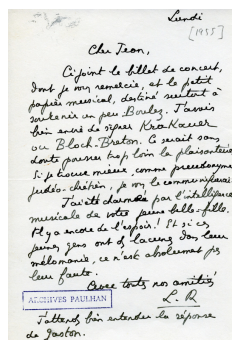 Lundi
[1955]
Cher Jean,
Ci joint le billet de concert,
dont je vous remercie, et le petit
papier musical, destiné surtout à
soutenir un peu Boulez. J'avais
bien envie de signer Krakauer
ou Bloch-Breton. Ce serait sans
doute pousser trop loin la plaisanterie.
Si je trouve mieux, comme pseudonyme
judéo-chrétien, je vous le communiquerai.
J'ai été charmé par l'intelligence
musicale de votre jeune belle-fille.
Il y a encore de l'espoir! Et si ces
jeunes gens ont des lacunes dans leur
mélomanie, ce n'est absolument pas
leur faute.
Avec toutes nos amitiés
L. R
ARCHIVES PAULHAN
J'attends bien entendu la réponse
de Gaston.